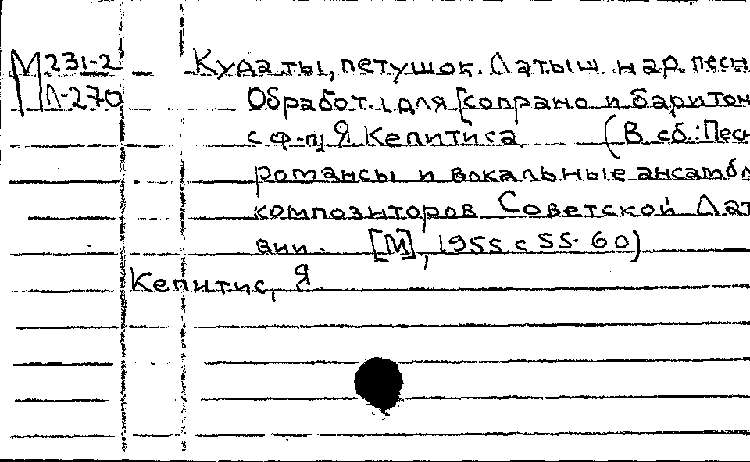 М 231-2
Л-270
Куда ты, петушок. Латыш. нар. песн
Обработ. для [сопрано и баритон
с ф-п] Я. Кепитиса (В сб.: Песн
романсы и вокальные ансамбл
композиторов Советской Лат
вии. [М], 1955 с 55-60)
Кепитис, Я